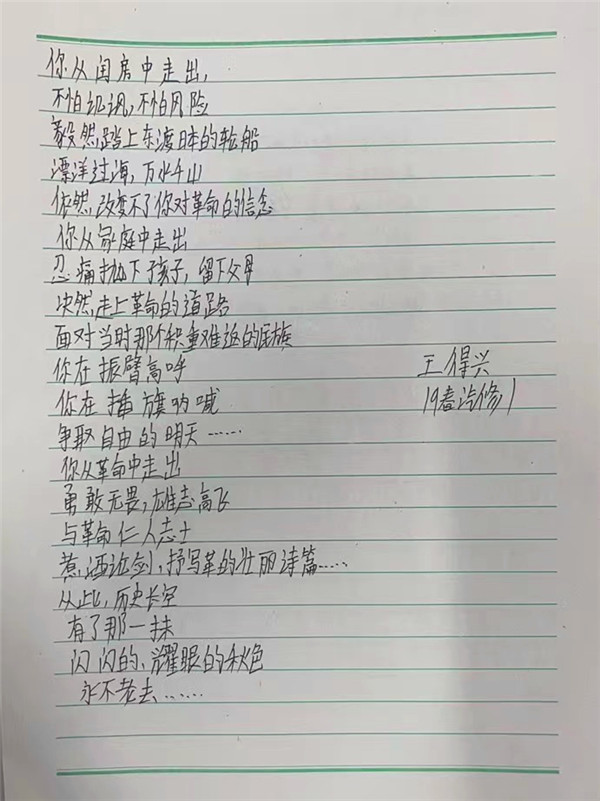 你从闺房中走出,
不怕讥讽,不怕风险
毅然,踏上东渡日本的轮船
漂洋过海,万水千山
依然,改变不了你对革命的信念
你从家庭中走出
忍痛抛下孩子,留下父母
决然,走上革命的道路
面对当时那个积重难返的民族
你在振臂高呼
王得兴
你在摇旗呐喊
19春汽修1
争取自由的明天……
你从革命中走出
勇敢无畏,雄志高飞
与革命仁人志士
煮酒论剑,抒写革的壮丽诗篇……
从此,历史长空
有了那一抹
闪闪的、耀眼的秋色
永不老去……